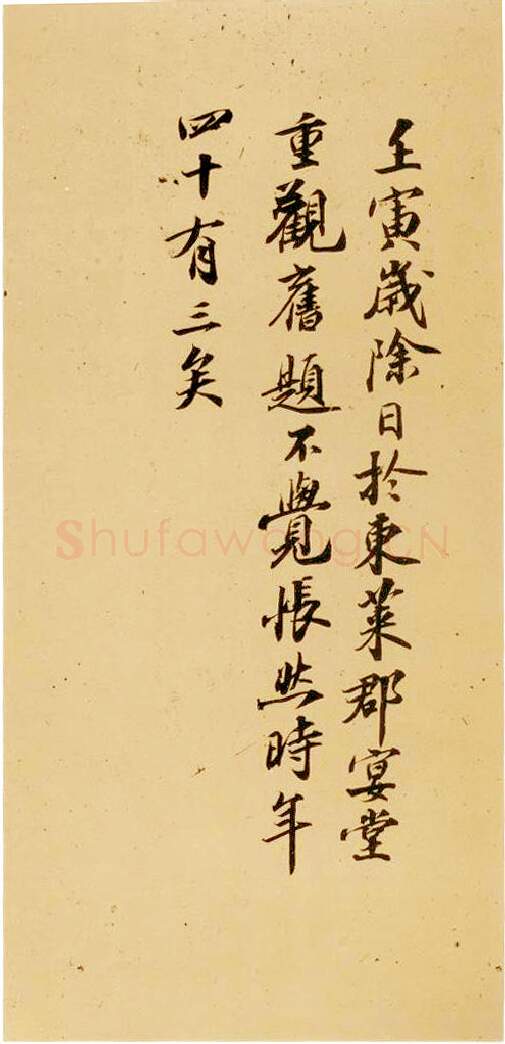 壬寅歲除日於東萊郡宴堂
重觀舊題不覺悵然時年
四十有三矣
Shufawang.CN